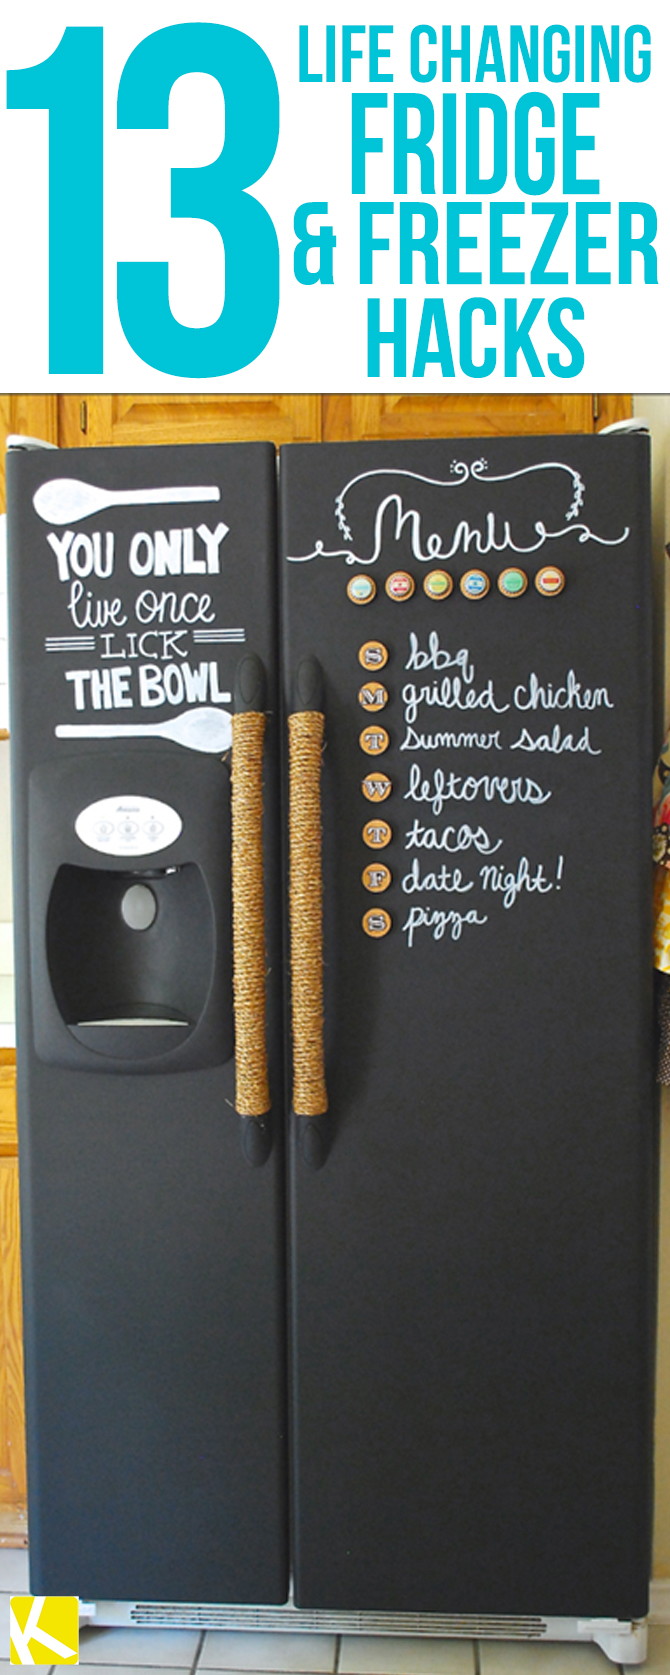 13
LIFE CHANGING
FRIDGE
& FREEZER
HACKS
YOU ONLY
live once
LICK
THE BOWL
Menu
S bbq
M grilled chicken
T summer salad
W leftovers
T tacos
F date night!
S pizza
K